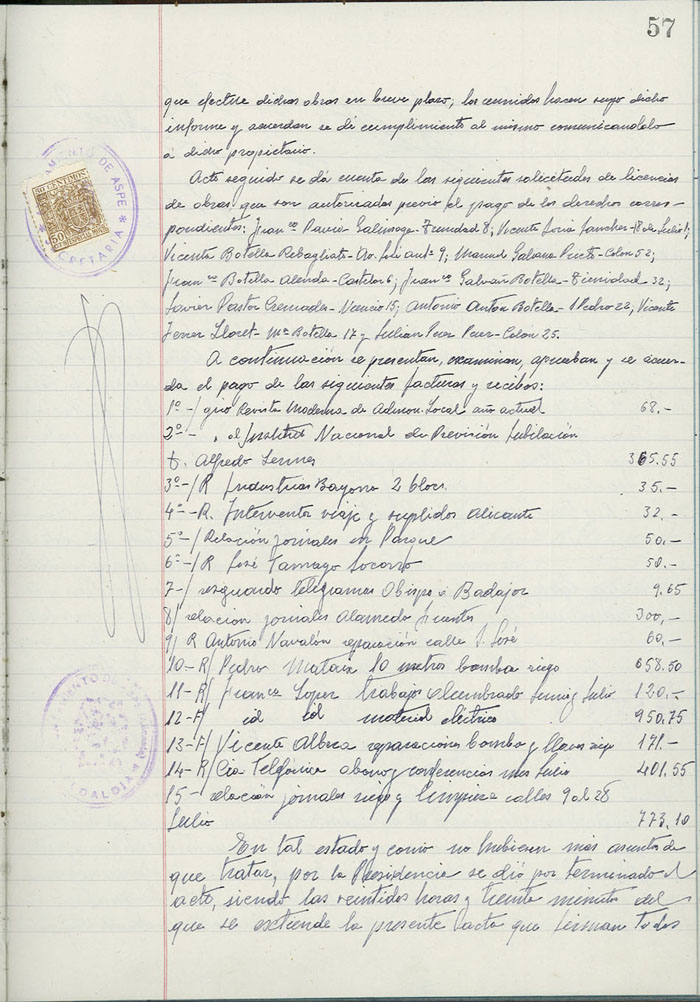 57
que efectúe dichas obras en breve plazo, los reunidos hacen suyo dicho
informe y acuerdan se dé cumplimiento al mismo comunicandolo
a dicho propietario.
Acto seguido se dá cuenta de las siguientes solicitudes de licencias
de obras que son autorizadas previo el pago de los derechos corres-
pondientes: Franco Pavia Galinsoga-Trinidad 8; Vicente Soria Sanchez-18 de Julio 1;
Vicente Botella Rebagliato-Av. José Antº 9; Manuel Galiana Prieto-Colón 52;
Franco Botella Alenda-Castelar 6; Franco Galvañ Botella-Trinidad 32;
Javier Pastor Cremades- 15; Antonio Anton Botella-S Pedro 22; Vicente
Ferrer Lloret-Mª Botella 17 y Julian Perez Perez-Colón 25.
A continuación se presentan, examinan, aprueban y se acuer-
da el pago de las siguientes facturas y recibos:
1º-/ giro Revista Moderna de Admon. Local año actual 68.-
2º- " al Instituto Nacional de Previsión Jubilación
D. Alfredo 365.55
3º-/ R Industrias Bayona 2 blocs 35.-
4º-R. Interventor viaje y suplidos Alicante 32.-
5º-/ Relación jornales en Parque 50.-
6º-/ R José Tamayo Socorro 50.-
7-/ resguardo telegramas Obispo a Badajoz 9.65
8/ relacion jornales Alameda fuentes 300,-
9/ R Antonio Navalón reparación calle S. José 60.-
10-R/ Pedro Mataix 10 metros bomba riego 658.50
11-R/ Franco Lopez trabajos alumbrado Junio y Julio 120.-
12-F/ id id material eléctrico 950,75
13-F/ Vicente Albeza reparaciones bomba y llaves riego 171.-
14-R/ Cia Telefónica abono y conferencias mes Julio 401.55
15- relación jornales riego y limpieza calles 9 al 28
Julio 773.10
En tal estado y como no hubiesen más asuntos de
que tratar, por la Presidencia se dió por terminado el
acto, siendo las veintidos horas y treinta minutos del
que se extiende la presente acta que firman todos
AYUNTAMIENTO DE ASPE
SECRETARIA
50 CENTIMOS
ALCALDIA